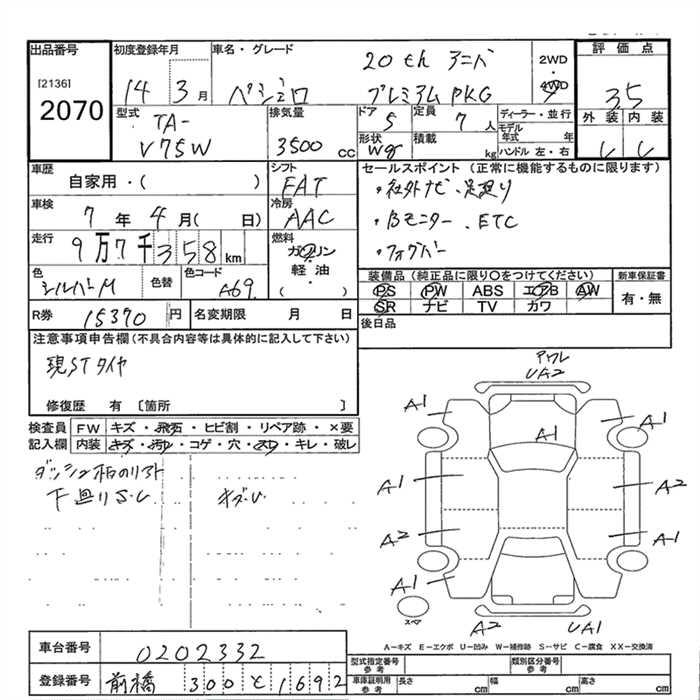 出品番号
[2136]
2070
初度登録年月
14 3月
車名・グレード
20th アニバ
パジェロ プレミアム PKG
2WD
4WD
評価点
3.5
外装 内装
型式
TA-
V75W
排気量
3500 cc
ドア
5
定員
7人
形状
Wg
積載
kg
ディーラー・並行
モデル
年式 年
ハンドル 左・右
車歴
自家用・( )
シフト
FAT
車検
7年 4月( 日)
冷房
AAC
走行
9万7千358km
燃料
ガソリン
軽油
( )
色
シルバーM
色替
色コード
A69
セールスポイント(正常に機能するものに限ります)
・社外ナビ
・Bモニター.ETC
・フォグバー
装備品(純正品に限り○をつけてください)
PS PW ABS エアB AW
SR ナビ TV カワ
新車保証書
有・無
R券 15370円
名変期限 月 日
後日品
注意事項申告欄(不具合内容等は具体的に記入して下さい)
現STタイヤ
修復歴 有 〔箇所 〕
検査員
記入欄
FW キズ・飛石・ヒビ割・リペア跡・×要
内装 キズ・汚れ・コゲ・穴・スレ・キレ・破レ
下廻りS.U
キズ.U
UA2
A1
A1
A1
A1
A2
A2
A2
A1
A1
スペア
A2
UA1
A-キズ E-エクボ U-凹み W-補修跡 S-サビ C-腐食 XX-交換済
車台番号
0202332
登録番号
前橋 300 と 1692
型式指定番号
参考
類別区分番号
参考
車庫証明用
参考
長さ cm
幅 cm
高さ cm